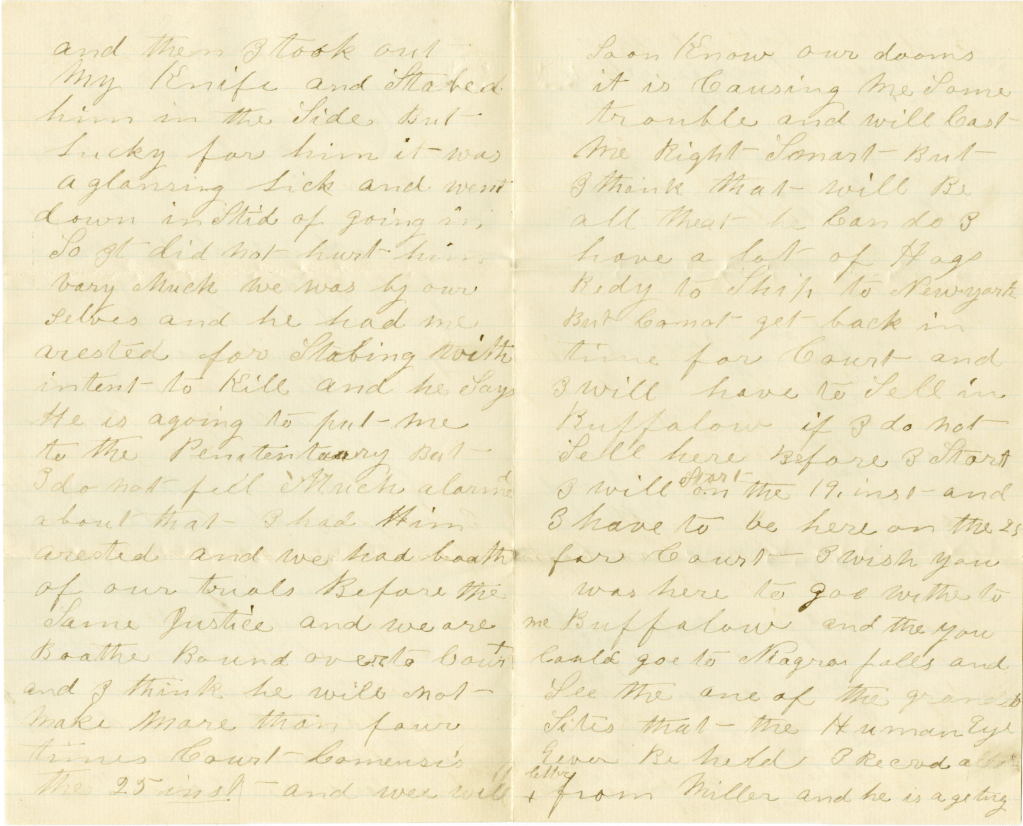 and then I took out
My Knife and Stabed
him in the Side But
Lucky for him it was
a glansing Lick and went
down in Stid of going in
So It did not hurt him
vary Much we was by our
Selves and he had me
arested for Stabing with
intent to Kill and he Says
He is agoing to put me
to the Penitentuary But
I do not fell Much alarmd
about that I had Him
arested and we had boath
of our trials Before the
Same Justice and we are
Boathe Bound over to Court
and I think he will not
make More than four
times Court Comensis
the 25 inst and wee will
Soon Know our dooms
it is Causing Me Some
trouble and will Cast
Me Right Smart But
I think that will Be
all that he Can do I
have a lot of Hogs
Redy to Ship to Newyork
But Canot get back in
time for Court and
I will have to Sell in
Buffalow if I do not
Sell here Before I Start
I will Start on the 19. inst and
I have to be here on the 25
for Court I wish you
was here to goe withe to
me Buffalow and the you
Could goe to Niagra falls and
See the one of the grandest
Sites that the Human Eye
Ever Be held I Recevd a
letter
+ from Miller and he is a geting